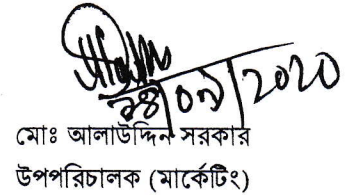 ২৪/০৯/2020
মোঃ আলাউদ্দিন সরকার
উপপরিচালক (মার্কেটিং)